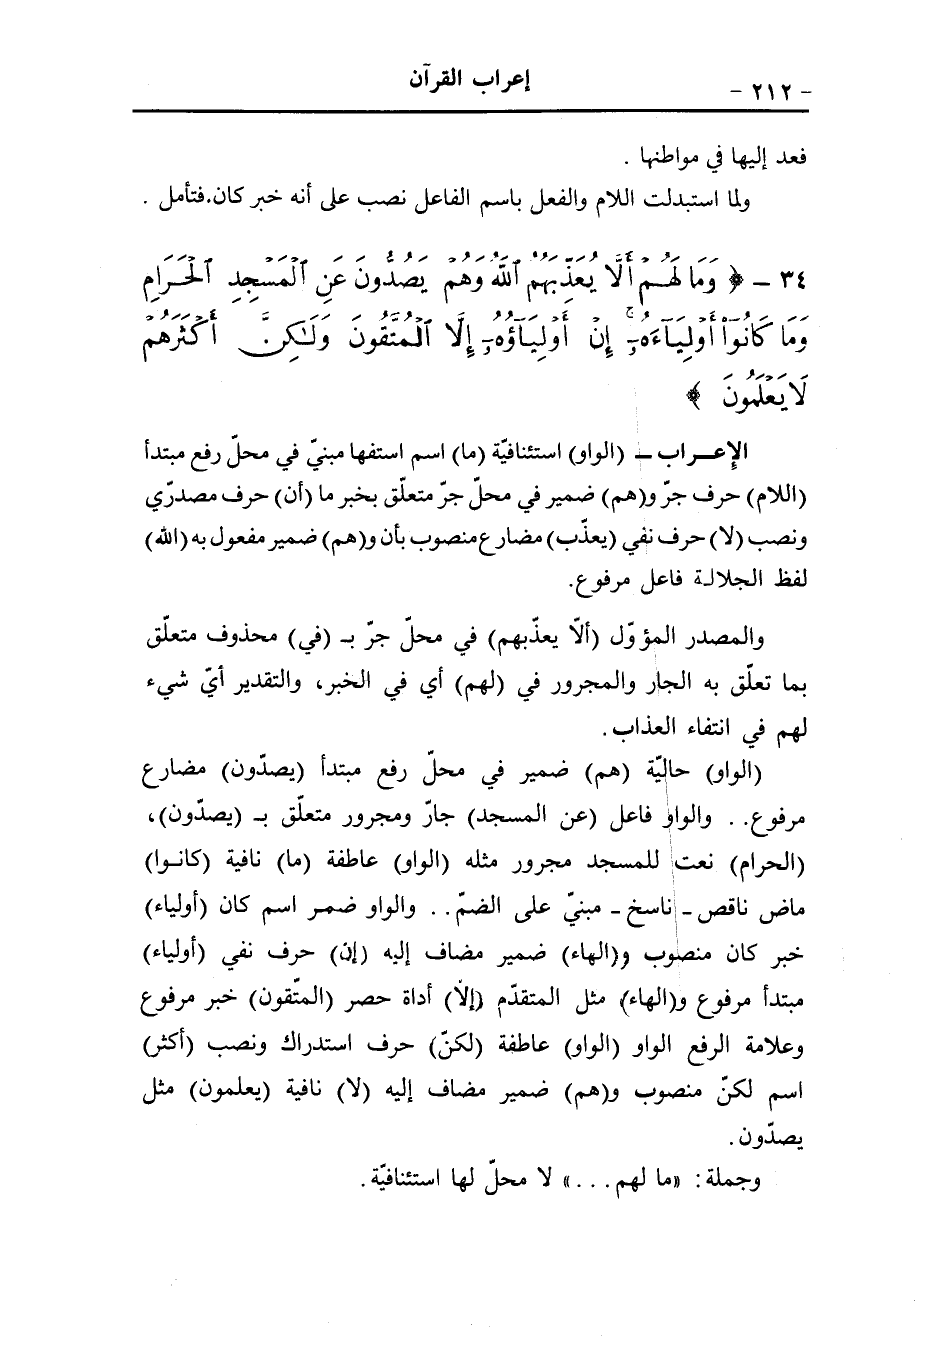 - ٢١٢ -
إعراب القرآن
فعد إليها في مواطنها .
ولما استبدلت اللام والفعل باسم الفاعل نصب على أنه خبر كان.فتأمل .
٣٤ - ﴿ وَمَا لَهُمْ أَلَّا يُعَذِّبَهُمُ ٱللَّهُ وَهُمْ يَصُدُّونَ عَنِ ٱلْمَسْجِدِ ٱلْحَرَامِ
وَمَا كَانُوٓا۟ أَوْلِيَآءَهُۥٓ ۚ إِنْ أَوْلِيَآؤُهُۥٓ إِلَّا ٱلْمُتَّقُونَ وَلَـٰكِنَّ أَكْثَرَهُمْ
لَا يَعْلَمُونَ ﴾
الإعـراب - (الواو) استئنافيّة (ما) اسم استفها مبنيّ في محلّ رفع مبتدأ
(اللام) حرف جرّ و(هم) ضمير في محلّ جرّ متعلّق بخبر ما (أن) حرف مصدرّي
ونصب (لا) حرف نفي (يعذّب) مضارع منصوب بأن و(هم) ضمير مفعول به (الله)
لفظ الجلالة فاعل مرفوع.
والمصدر المؤوّل (ألّا يعذّبهم) في محلّ جرّ بـ (في) محذوف متعلّق
بما تعلّق به الجار والمجرور في (لهم) أي في الخبر، والتقدير أيّ شيء
لهم في انتفاء العذاب.
(الواو) حاليّة (هم) ضمير في محلّ رفع مبتدأ (يصدّون) مضارع
مرفوع.. والواو فاعل (عن المسجد) جارّ ومجرور متعلّق بـ (يصدّون)،
(الحرام) نعت للمسجد مجرور مثله (الواو) عاطفة (ما) نافية (كانـوا)
ماض ناقص - ناسخ - مبنيّ على الضمّ.. والواو ضمر اسم كان (أولياء)
خبر كان منصوب و(الهاء) ضمير مضاف إليه (إن) حرف نفي (أولياء)
مبتدأ مرفوع و(الهاء) مثل المتقدّم (إلّا) أداة حصر (المتّقون) خبر مرفوع
وعلامة الرفع الواو (الواو) عاطفة (لكنّ) حرف استدراك ونصب (أكثر)
اسم لكنّ منصوب و(هم) ضمير مضاف إليه (لا) نافية (يعلمون) مثل
يصدّون.
وجملة: «ما لهم...» لا محلّ لها استئنافيّة.